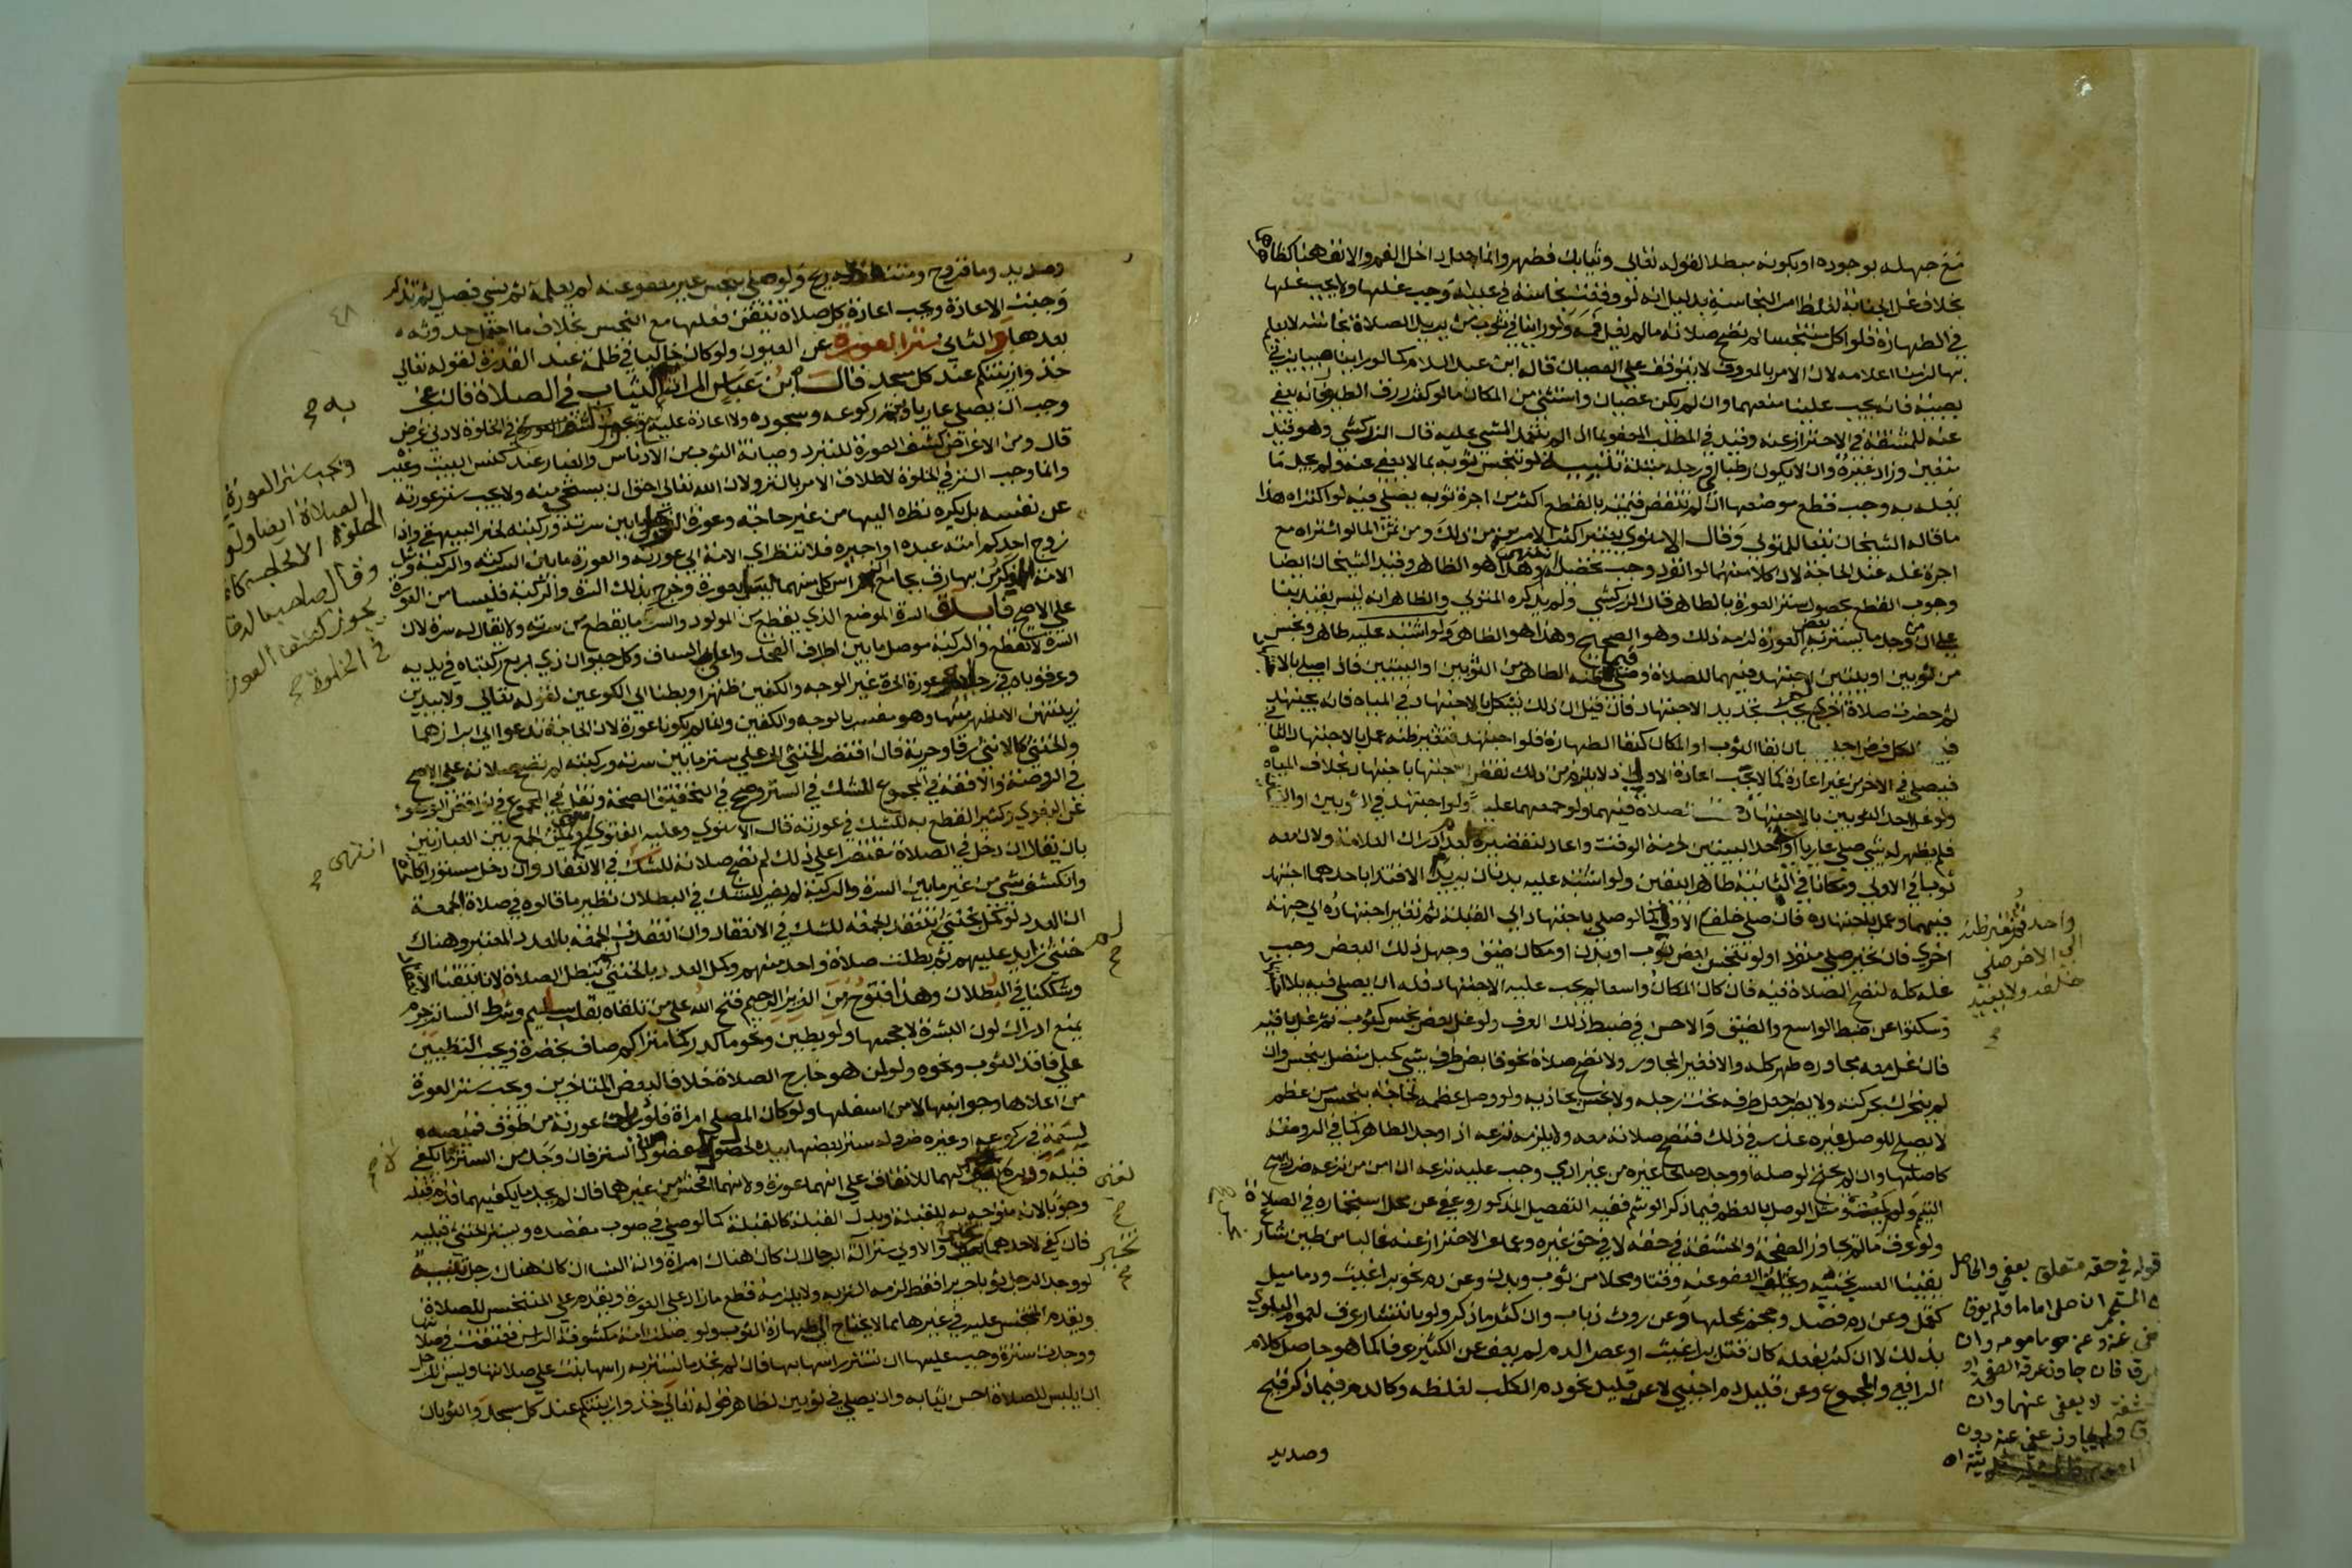 مع جهله بوجوده او بكونه مبطلا لقوله تعالى وثيابك فطهر وانما جعل داخل الفم والانف هنا كظاهرهما
بخلاف غسل الجنابة لغلظ امر النجاسة بدليل انه لو وقعت نجاسة في عينه وجب غسلها ولا يجب غسلها
في الطهارة فلو اكل متنجسا لم تصح صلاته ما لم يغسل فمه ولو راينا في ثوب من يريد الصلاة نجاسة لا يعلم
بها لزمنا اعلامه لان الامر بالمعروف لا يتوقف على العصيان قاله ابن عبد السلام كما لو راينا صبيا يزني
بصبية فانه يجب علينا منعهما وان لم يكن عصيان واستثنى من المكان ما لو كثر زرق الطيور فانه يعفى
عنه للمشقة في الاحتراز عنه وقيد في المطلب العفو بما اذا لم يتعمد المشي عليه قال الزركشي وهو قيد
متعين وزاد غيره وان لا يكون رطبا او رجله مبتلة تنبيه لو تنجس ثوبه بما لا يعفى عنه ولم يجد ما
يغسله به وجب قطع موضعها ان لم تنقص قيمته بالقطع اكثر من اجرة ثوب يصلي فيه لو اكتراه هذا
ما قاله الشيخان تبعا للمتولي وقال الاسنوي يعتبر اكثر الامرين من ذلك ومن ثمن الماء لو اشتراه مع
اجرة غسله عند الحاجة لان كلا منهما لو انفرد وجب تحصيله انتهى وهذا هو الظاهر وقيد الشيخان ايضا
وجوب القطع بحصول ستر العورة بالطاهر قال الزركشي ولم يذكره المتولي والظاهر انه ليس بقيد بناء
على ان من وجد ما يستر به بعض العورة لزمه ذلك وهو الصحيح وهذا هو الظاهر ولو اشتبه عليه طاهر ونجس
من ثوبين او بيتين اجتهد فيهما للصلاة وصلى فيما ظنه الطاهر من الثوبين او البيتين فاذا صلى بالاجتهاد
ثم حضرت صلاة اخرى لم يجب تجديد الاجتهاد فان قيل ان ذلك يشكل بالاجتهاد في المياه فانه يجتهد فيها
لكل فرض اجيب بان بقاء الثوب او المكان كبقاء الطهارة فلو اجتهد فتغير ظنه عمل بالاجتهاد الثاني
فيصلي في الاخر من غير اعادة كما لا يجب اعادة الاولى اذ لا يلزم من ذلك نقض اجتهاد باجتهاد بخلاف المياه
ولو غسل احد الثوبين بالاجتهاد الصلاة فيهما ولو جمعهما عليه ولو اجتهد في الثوبين او البيتين
فلم يظهر له شي صلى عاريا او في احد البيتين لحرمة الوقت واعاد لتقصيره بعدم ادراك العلامة ولان معه
ثوبا في الاولى ومكانا في الثانية طاهرا بيقين ولو اشتبه عليه بدنان يريد الاقتداء باحدهما اجتهد
فيهما وعمل باجتهاده فان صلى خلف الاول كما لو صلى باجتهاد الى القبلة ثم تغير اجتهاده الى جهة
اخرى فان تحير صلى منفردا ولو تنجس بعض ثوب او بدن او مكان ضيق وجهل ذلك البعض وجب
غسله كله لتصح الصلاة فيه فان كان المكان واسعا لم يجب عليه الاجتهاد فله ان يصلي فيه بلا اجتهاد
وسكتوا عن ضبط الواسع والضيق والاحسن في ضبط ذلك العرف ولو غسل بعض نجس كثوب ثم غسل باقيه
فان غسل معه مجاوره طهر كله والا فغير المجاور ولا تصح صلاة نحو قابض طرف شي كحبل متصل بنجس وان
لم يتحرك بحركته ولا يضر جعل طرفه تحت رجله ولا نجس يحاذيه ولو وصل عظمه لحاجة بنجس من عظم
لا يصلح للوصل غيره عذر في ذلك فتصح صلاته معه ولا يلزمه نزعه اذا وجد الطاهر كما في الروضة
كاصلها وان لم يحتج لوصله او وجد صالحا غيره من غير ادمي وجب عليه نزعه ان امن من نزعه ضررا يبيح
التيمم ولم يمت ومثل الوصل بالعظم فيما ذكر الوشم ففيه التفصيل المذكور وعفي عن محل استجماره في الصلاة
ولو عرق ما لم يجاوز الصفحة والحشفة في حقه لا في حق غيره وعما عسر الاحتراز عنه غالبا من طين شارع
يقينا لعسر تجنبه ويختلف العفو عنه وقتا ومحلا من ثوب وبدن وعن دم نحو براغيث ودماميل
كقمل وعن دم فصد وحجم بمحلهما وعن روث ذباب وان كثر ما ذكر ولو بانتشار عرق لعموم البلوى
بذلك لا ان كثر بفعله كان قتل براغيث او عصر الدم لم يعف عن الكثير عرفا كما هو حاصل كلام
الرافعي والمجموع وعن قليل دم اجنبي لا عن قليل نحو دم الكلب لغلظه وكالدم فيما ذكر قيح
وصديد
واحد ثم تغير ظنه
الى الاخر صلى
خلفه ولا يعيد
قوله في حقه متعلق بعفي والحاصل
لا يعفى عنهما وان
وصديد وماء قروح ومتنفط له ريح ولو صلى بنجس غير معفو عنه لم يعلمه ثم نسي فصلى ثم تذكر
وجبت الاعادة ويجب اعادة كل صلاة تيقن فعلها مع النجس بخلاف ما احتمل حدوثه
بعدها والثاني ستر العورة عن العيون ولو كان خاليا في ظلمة عند القدرة لقوله تعالى
خذوا زينتكم عند كل مسجد قال ابن عباس المراد به الثياب في الصلاة فان عجز
وجب ان يصلي عاريا ويتم ركوعه وسجوده ولا اعادة عليه ويجوز كشف العورة في الخلوة لادنى غرض
قال ومن الاغراض كشف العورة للتبرد وصيانة الثوب من الادناس والغبار عند كنس البيت وغيره
وانما وجب الستر في الخلوة لاطلاق الامر بالستر ولان الله تعالى احق ان يستحى منه ولا يجب ستر عورته
عن نفسه بل يكره نظره اليها من غير حاجة وعورة الرجل ما بين سرته وركبته لخبر البيهقي واذا
زوج احدكم امته عبده او اجيره فلا تنظر اي الامة الى عورته والعورة ما بين السرة والركبة ومثل
الامة بجامع ان راس كل منهما ليس بعورة وخرج بذلك السرة والركبة فليسا من العورة
على الاصح فائدة السرة الموضع الذي يقطع من المولود والسر ما يقطع من سرته ولا يقال له سرة لان
السرة لا تقطع والركبة موصل ما بين اطراف الفخذ واعالي الساق وكل حيوان ذي اربع ركبتاه في يديه
وعرقوباه في رجليه وعورة الحرة غير الوجه والكفين ظهرا وبطنا الى الكوعين لقوله تعالى ولا يبدين
زينتهن الا ما ظهر منها وهو مفسر بالوجه والكفين وانما لم يكونا عورة لان الحاجة تدعوا الى ابرازهما
والخنثى كالانثى رقا وحرية فان اقتصر الخنثى الحر على ستر ما بين سرته وركبته لم تصح صلاته على الاصح
في الروضة والافقه في المجموع للشك في الستر وصحح في التحقيق الصحة ونقل في المجموع في نواقض الوضوء
عن البغوي وكثير القطع به للشك في عورته قال الاسنوي وعليه الفتوى ويمكن الجمع بين العبارتين
بان يقال ان دخل في الصلاة مقتصرا على ذلك لم تصح صلاته للشك في الانعقاد وان دخل مستورا كالحرة
وانكشف شي من غير ما بين السرة والركبة لم يضر للشك في البطلان نظير ما قالوه في صلاة الجمعة
ان العدد لو كمل بخنثى لم تنعقد الجمعة للشك في الانعقاد وان انعقدت الجمعة بالعدد المعتبر وهناك
خنثى زايد عليهم ثم بطلت صلاة واحد منهم وكمل العدد بالخنثى لم تبطل الصلاة لانا تيقنا الانعقاد
وشككنا في البطلان وهذا فتوح من العزيز الرحيم فتح الله على من تلقاه بقلب سليم وشرط الساتر جرم
يمنع ادراك لون البشرة لا حجمها ولو بطين ونحو ماء كدر كماء متراكم صاف بخضرة ويجب التطيين
على فاقد الثوب ونحوه ولو لمن هو خارج الصلاة خلافا لبعض المتاخرين ويجب ستر العورة
من اعلاها وجوانبها لا من اسفلها ولو كان المصلي امراة فلو رايت عورته من طوق قميصه
لسعته في ركوعه او غيره ضر وله ستر بعضها بيده لحصول مقصود الستر فان وجد من السترة ما يكفي
قبله ودبره تعين لهما للاتفاق على انهما عورة ولانهما افحش من غيرهما فان لم يجد ما يكفيهما قدم قبله
وجوبا لانه متوجه به للقبلة وبدل القبلة كالقبلة كما لو صلى في صوب مقصده ويستر الخنثى قبليه
فان كفى لاحدهما تخير والاولى ستر آلة الرجال ان كان هناك امراة وآلة النساء ان كان هناك رجل تنبيه
لو وجد الرجل ثوبا حريرا فقط لزمه الستر به ولا يلزمه قطع ما زاد على العورة ويقدم على المتنجس للصلاة
ويقدم المتنجس عليه في غيرها مما لا يحتاج الى طهارة الثوب ولو صلت امة مكشوفة الراس فعتقت في صلاتها
ووجدت سترة وجب عليها ان تستر راسها بها فان لم تجد ما تستر به راسها بنت على صلاتها ويسن للرجل
ان يلبس للصلاة احسن ثيابه وان يصلي في ثوبين لظاهر قوله تعالى خذوا زينتكم عند كل مسجد والثوبان
٤٨
به صح
ويجب ستر العورة
الصلاة ايضا ولو
الخلوة الا لحاجة كا
وقال صاحب الذخا
يجوز كشف العور
في الخلوة صح
انتهى صح
لم صح
تخير صح